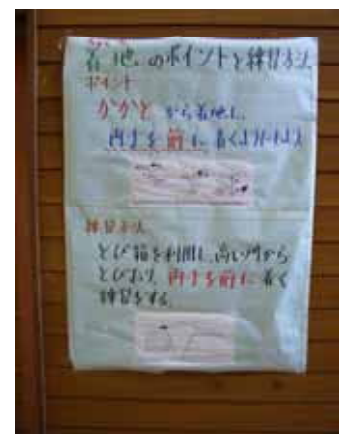 着地のポイントと練習方法
ポイント
かかとから着地し、
両手を前に着くようにしよう
練習方法
とび箱を利用し、高い所から
とびおり、両手を前に着く
練習をする。